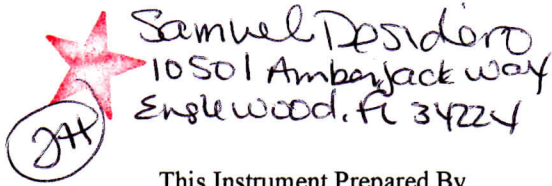 Samuel Desidero
10501 Amberjack way
Englewood, FL 34224
JH
This Instrument Prepared By